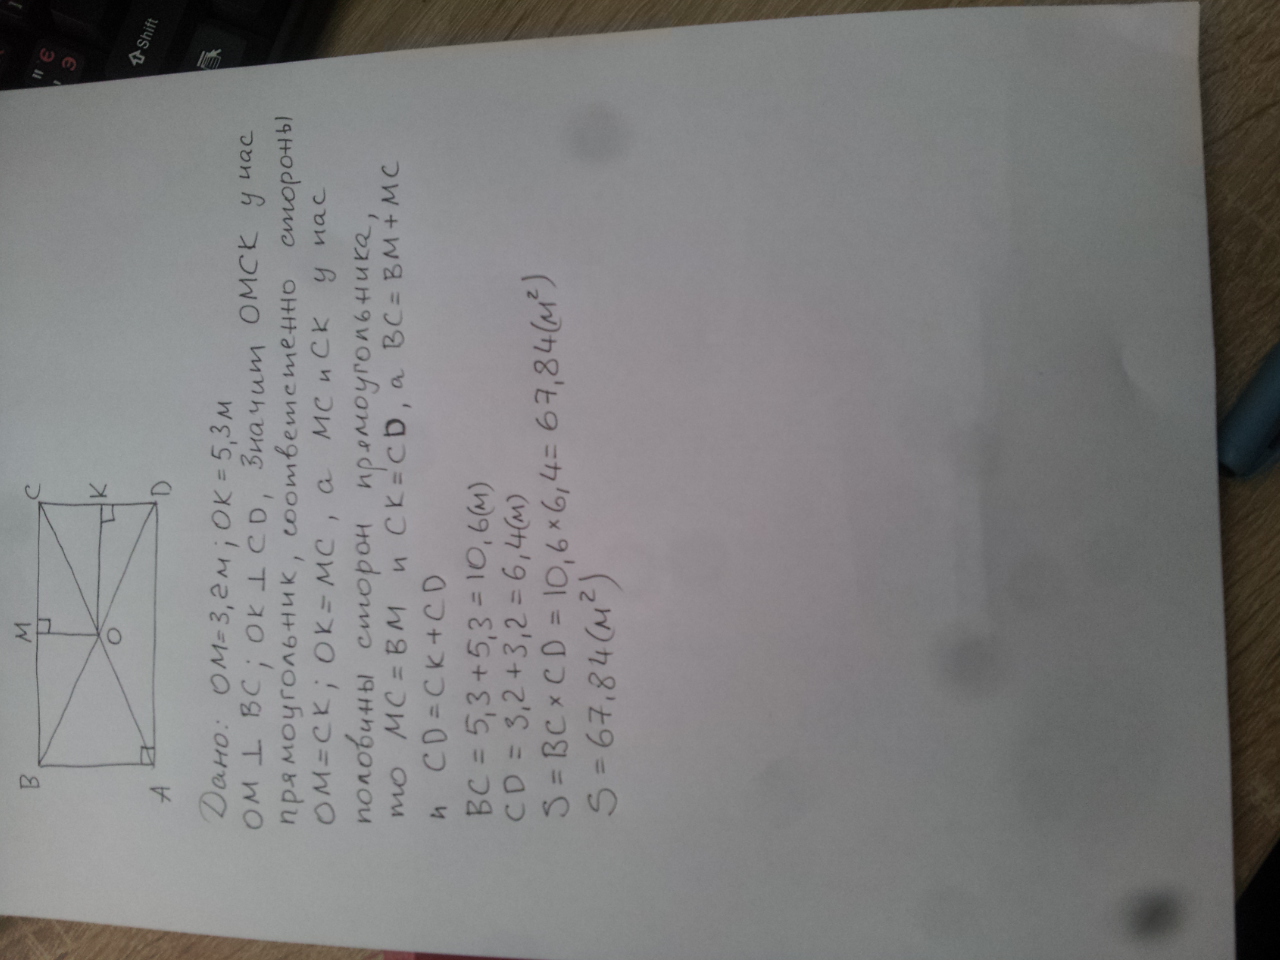 Shift
" Є
' Э
B M C
K
O
A D
Дано: OM=3,2м; OK=5,3м
OM ⊥ BC; OK ⊥ CD, Значит OMCK у нас
прямоугольник, соответственно стороны
OM=CK; OK=MC, а MC и CK у нас
половины сторон прямоугольника,
то MC=BM и CK=CD, а BC=BM+MC
и CD=CK+CD
BC=5,3+5,3=10,6(м)
CD=3,2+3,2=6,4(м)
S=BC×CD=10,6×6,4=67,84(м²)
S=67,84(м²)